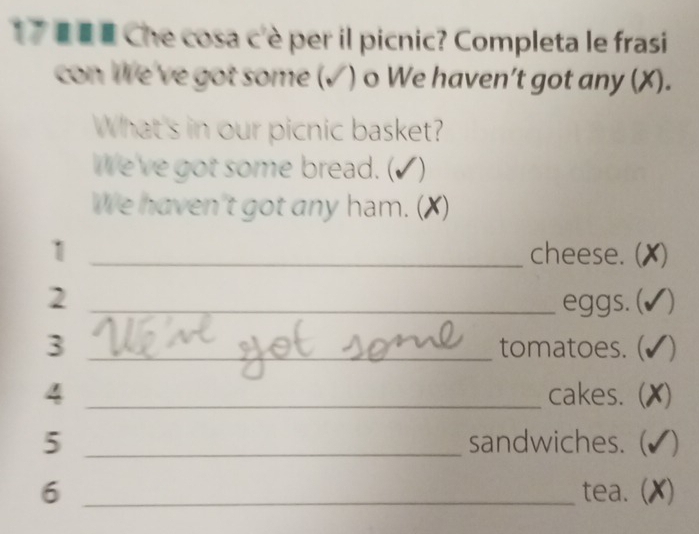 17 Che cosa c'è per il picnic? Completa le frasi
con We've got some (✓) o We haven't got any (✗).
What's in our picnic basket?
We've got some bread. (✓)
We haven't got any ham. (✗)
1 ______ cheese. (✗)
2 ______ eggs. (✓)
3 We've got some tomatoes. (✓)
4 ______ cakes. (✗)
5 ______ sandwiches. (✓)
6 ______ tea. (✗)